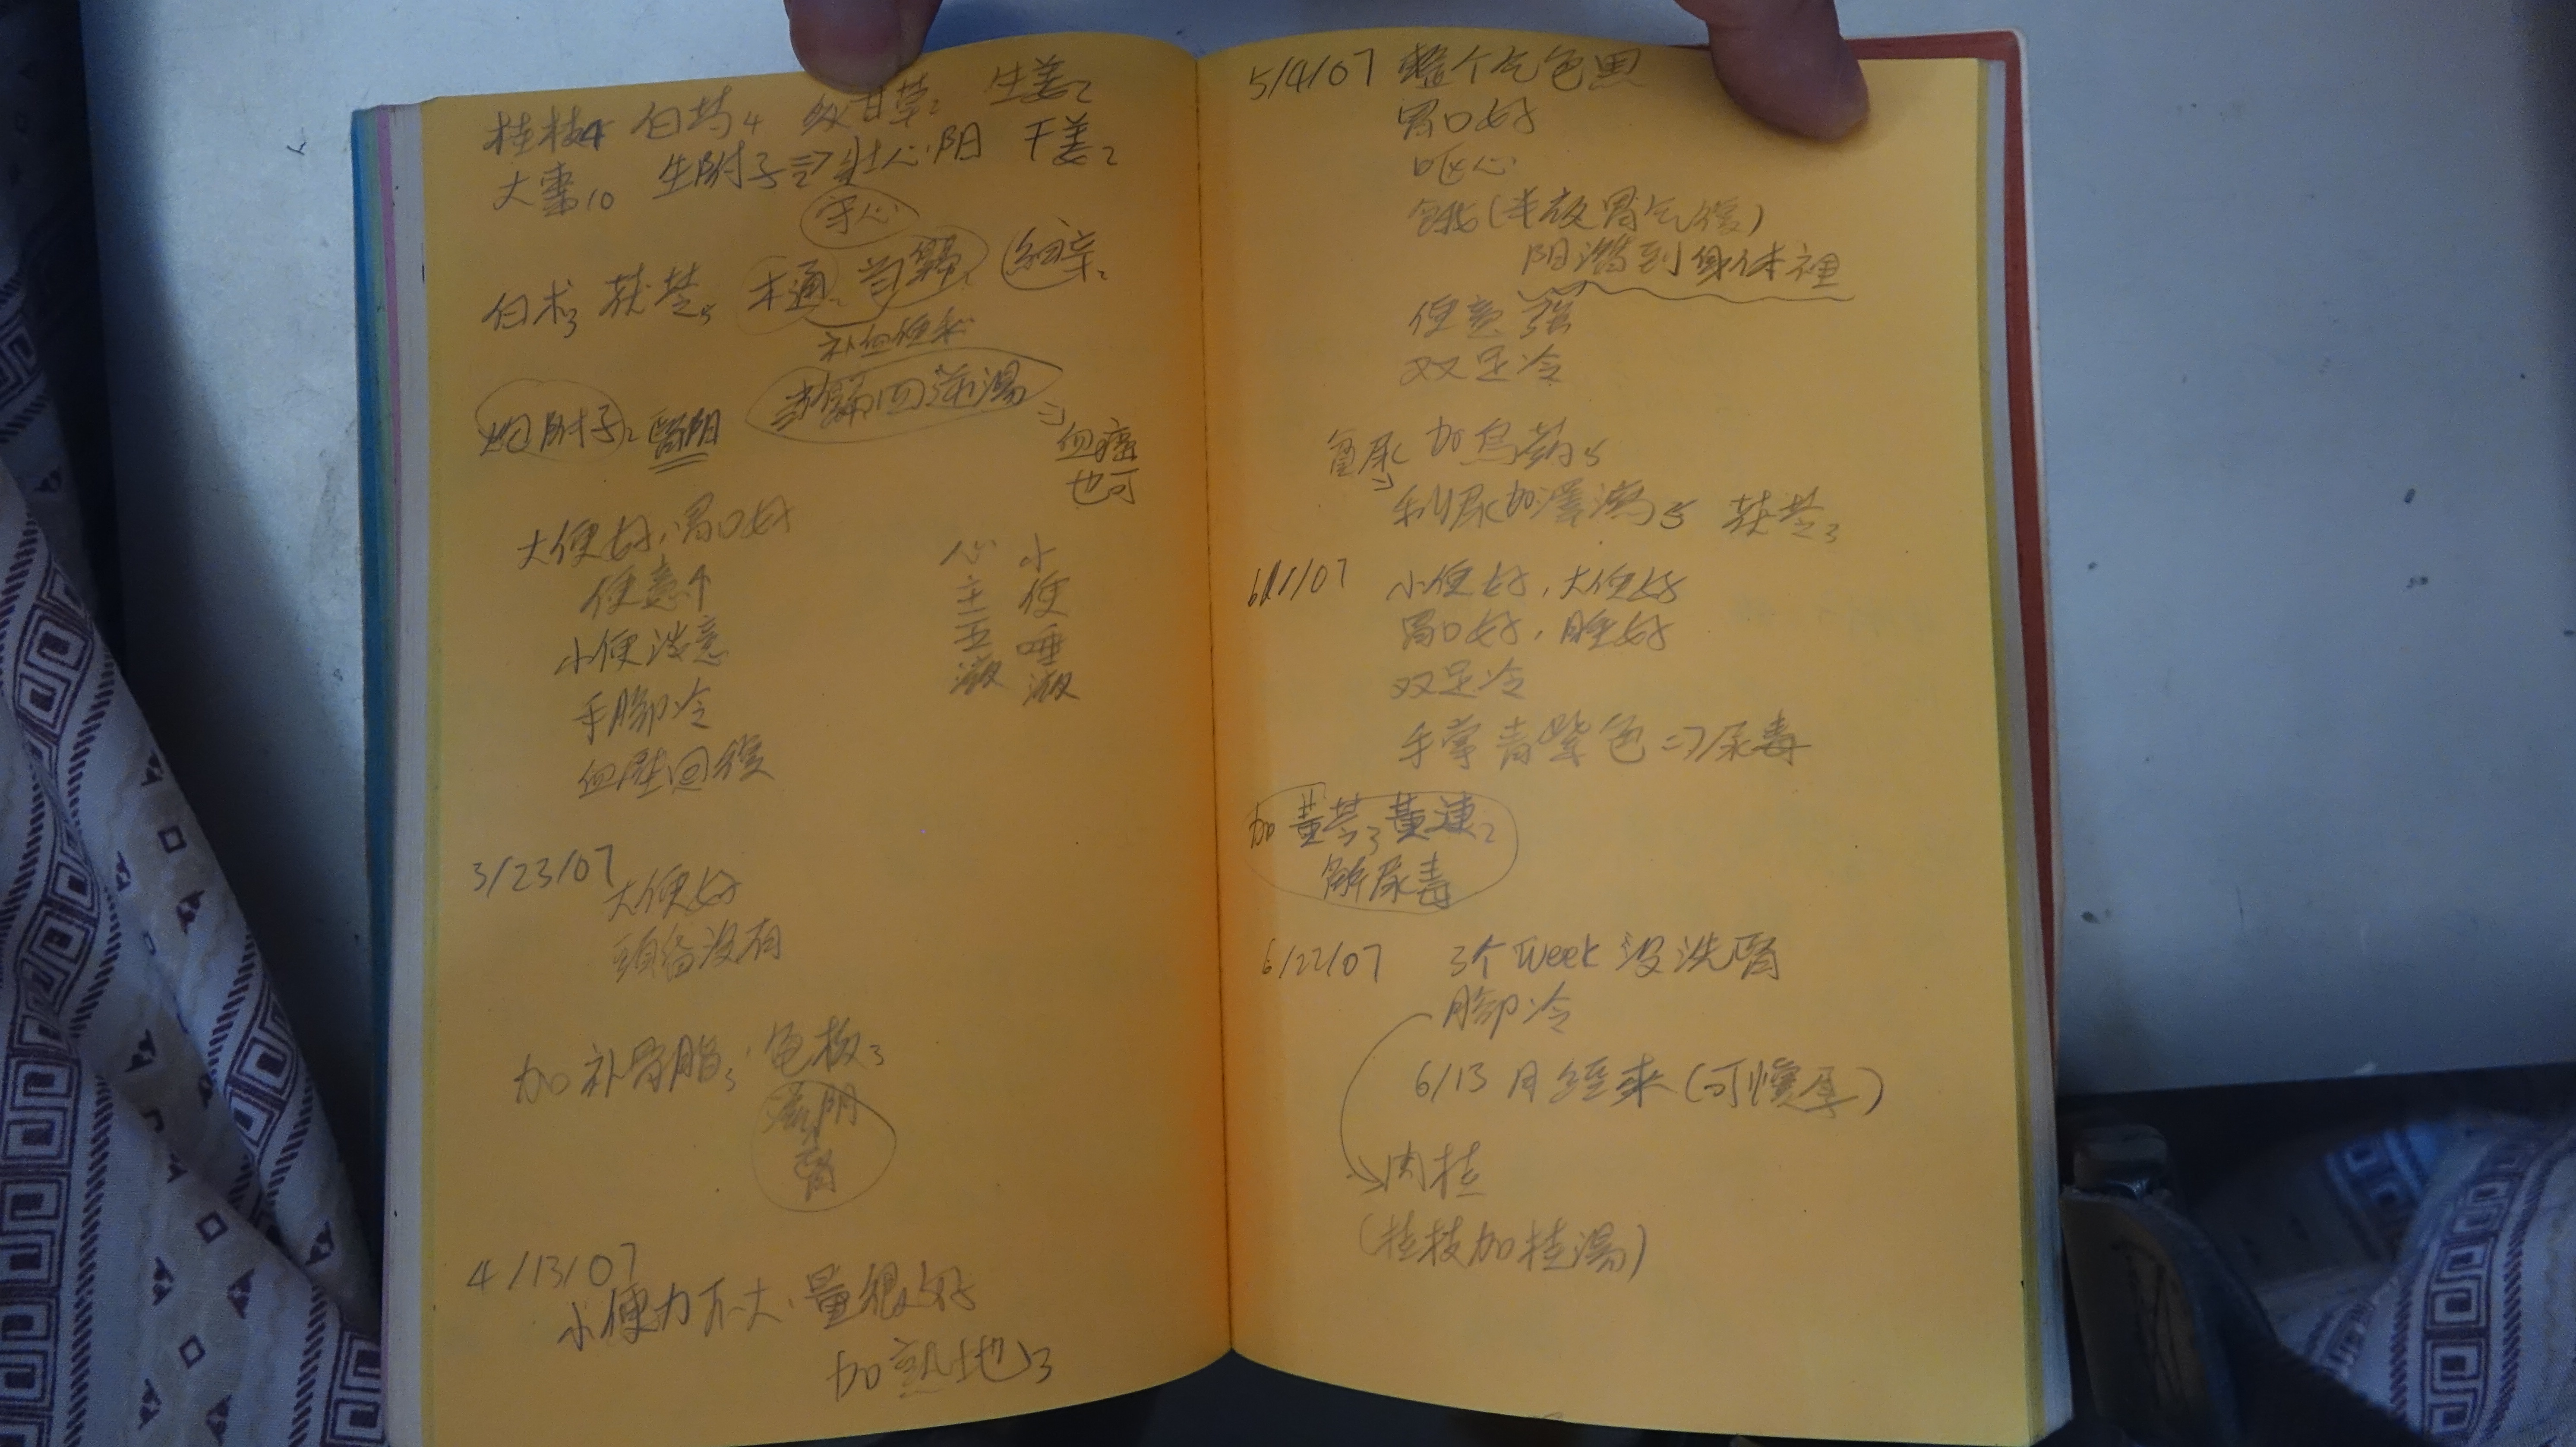 桂枝4 白芍4 炙甘草2 生姜2
大棗10 生附子3⇒壮心阳 干姜2
守心
白术3 茯苓5 木通2 当歸2 細辛2
补血
炮附子2 腎阳 当歸四逆湯
⇒血癌
也可
大便好,胃口好
便意个
小便淡
手腳冷
血壓回復
心主五液
小便唾液
3/23/07
大便好
頭昏沒有
加 补骨脂3, 龟板3
阴
腎
4/13/07
小便力不大,量很好
加熟地3
5/4/07 整个气色黑
胃口好
呕心
餓(半夜胃气復)
阴潛到身体裡
便意強
双足冷
加烏药5
⇒利尿加澤瀉5 茯苓3
6/1/07 小便好,大便好
胃口好,睡好
双足冷
手掌青紫色⇒尿毒
加黄芩3 黄連2
解尿毒
6/22/07 3个week 沒洗腎
腳冷
6/13 月經來(可懷孕)
肉桂
(桂枝加桂湯)